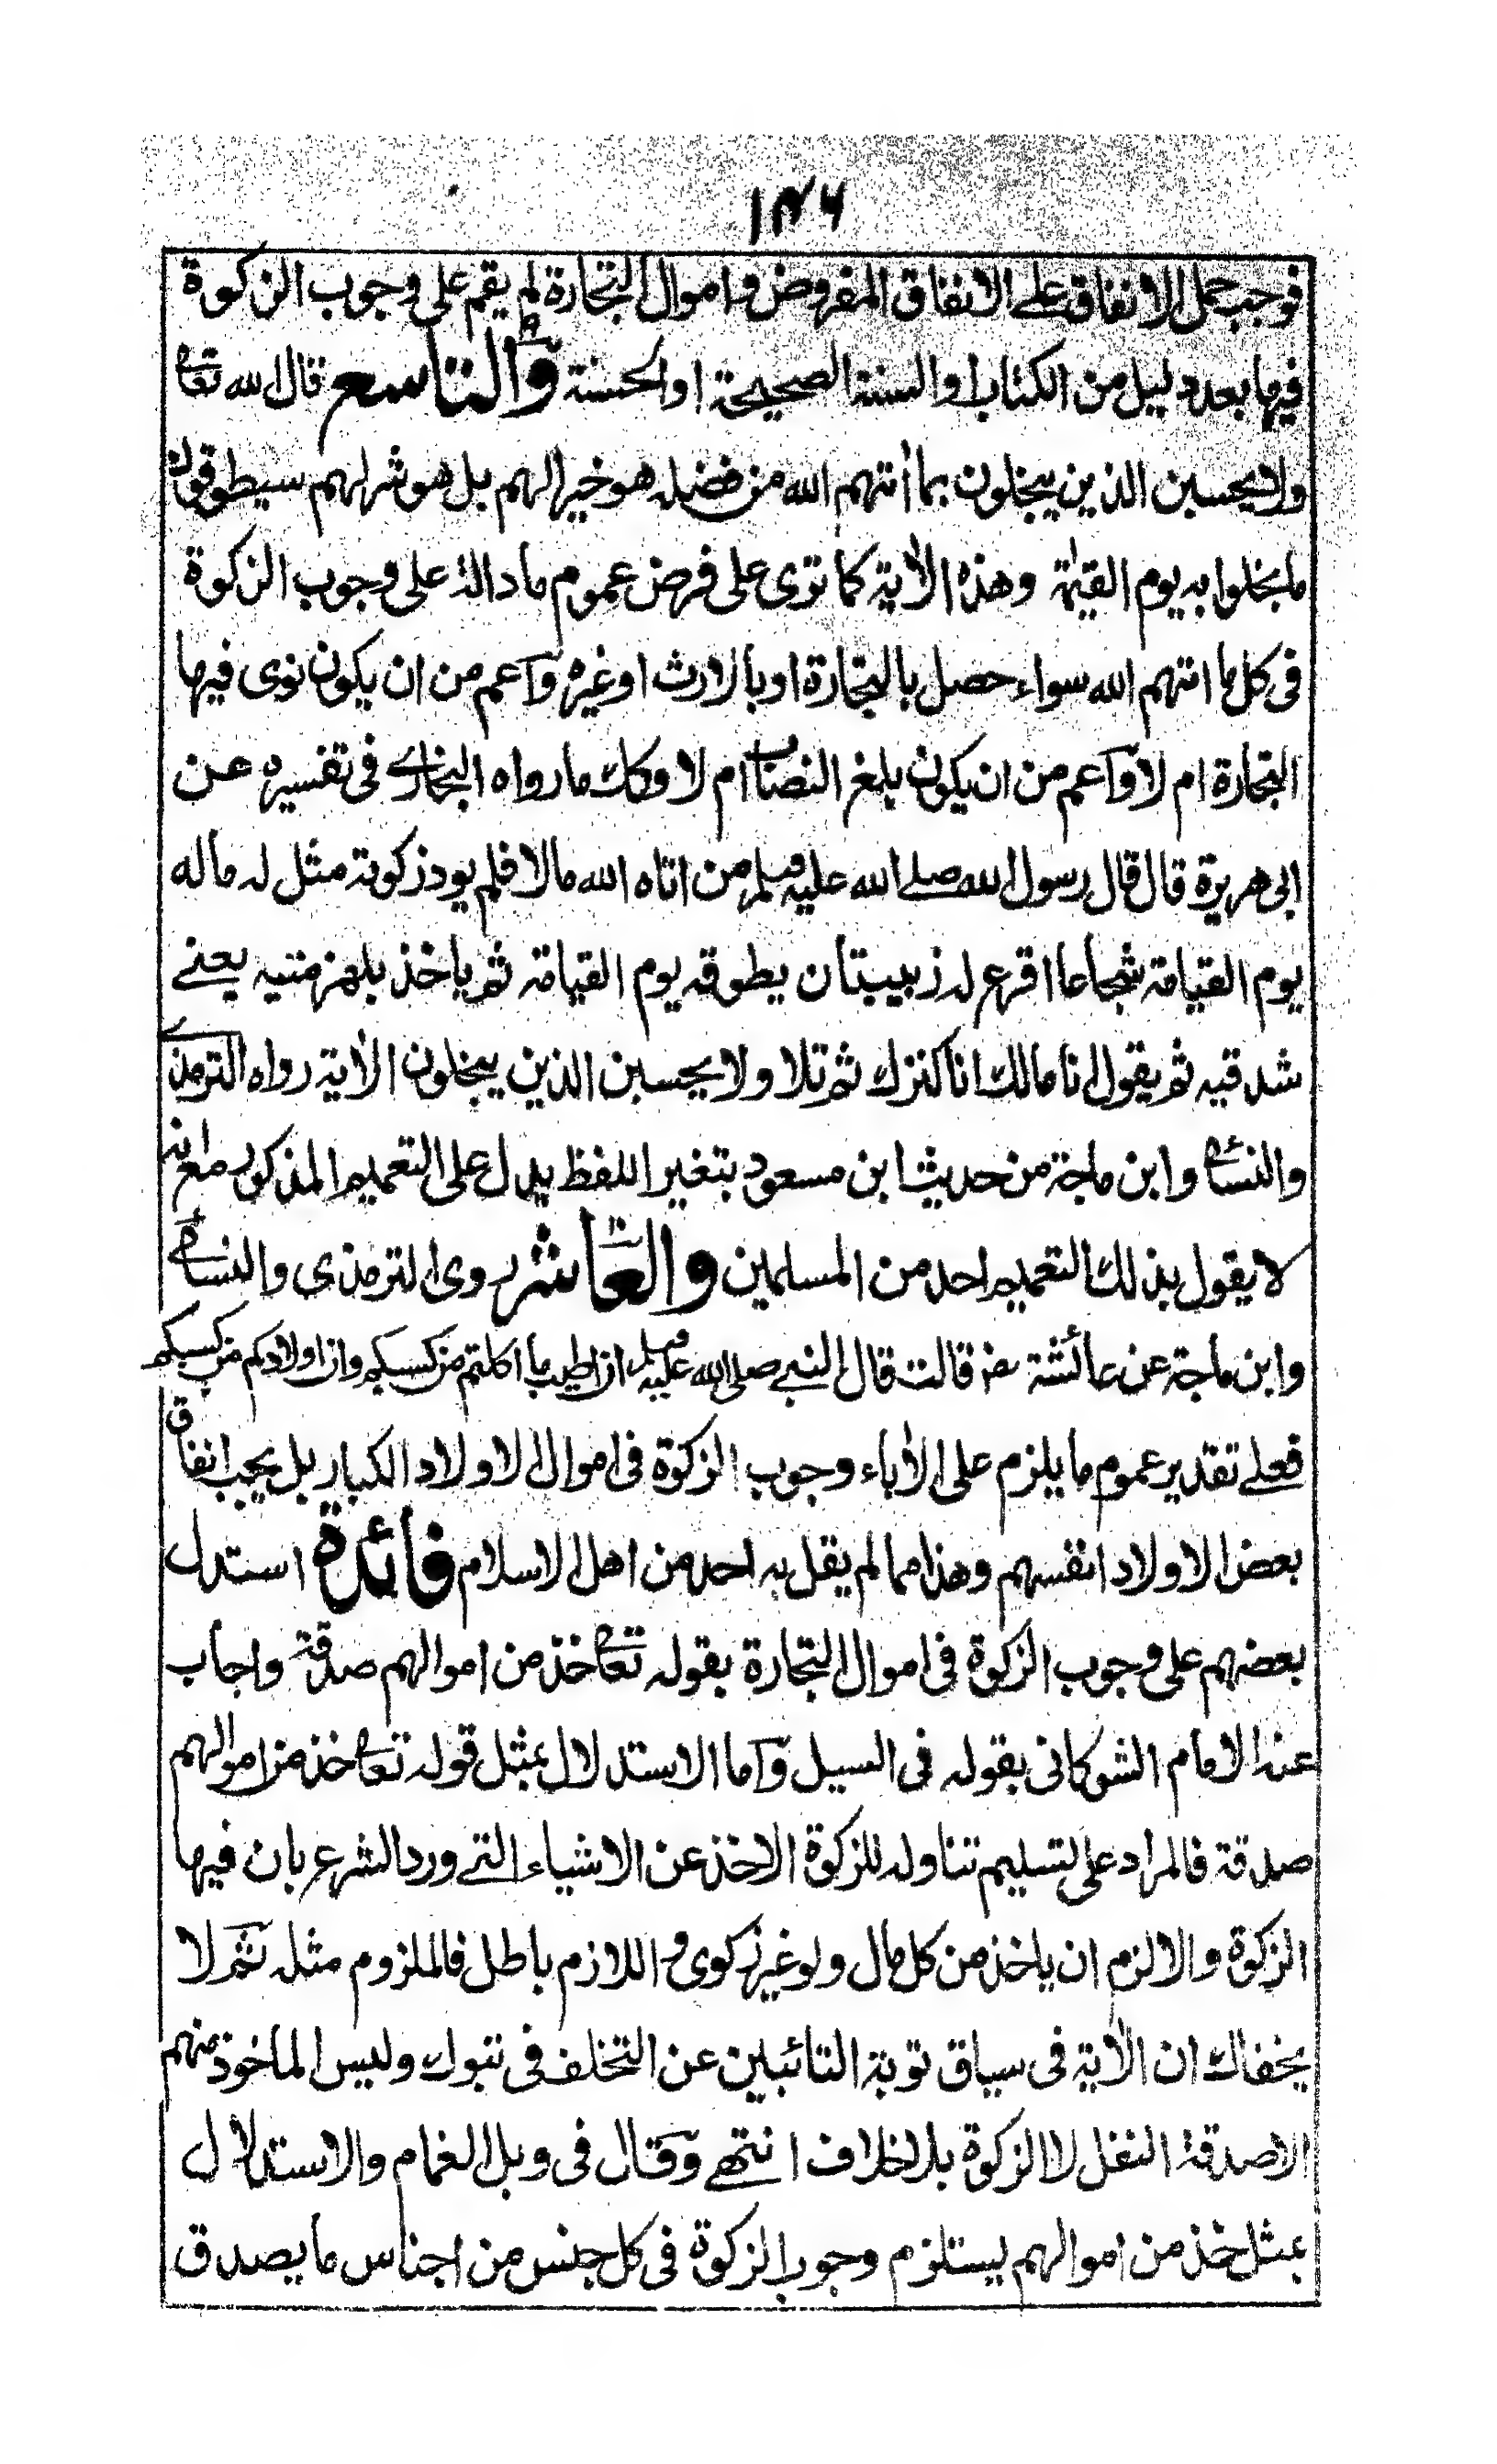 ١٣٦
فوجب حمل الانفاق على الانفاق المفروض و اموال التجارة لم يقم على وجوب الزكوة
فيها بعد دليل من الكتاب او السنة الصحيحة او الحسنة والتاسع قال الله تعالى
ولا يحسبن الذين يبخلون بما أتهم الله من فضله هو خيرا لهم بل هو شر لهم سيطوقون
ما بخلوا به يوم القيمة وهذه الأية كما ترى على فرض عموم ما دالة على وجوب الزكوة
فى كل ما اتهم الله سواء حصل بالتجارة او بالارث او غيره وأعم من ان يكون نوى فيها
التجارة ام لا وأعم من ان يكون بلغ النصاب ام لا وكك ما رواه البخارى فى تفسيره عن
ابى هريرة قال قال رسول الله صلى الله عليه وسلم من اتاه الله مالا فلم يود زكوته مثل له ماله
يوم القيامة شجاعا اقرع له زبيبتان يطوقه يوم القيامة ثم ياخذ بلهزمتيه يعنے
شدقيه ثم يقول انا مالك انا كنزك ثم تلا ولا يحسبن الذين يبخلون الأية رواه الترمذى
والنسائى وابن ماجة من حديث ابن مسعود بتغير اللفظ يدل على التعميم المذكور مع انه
لا يقول بذلك التعميم احد من المسلمين والعاشر روى الترمذى والنسائى
وابن ماجة عن عائشة رض قالت قال النبى صلى الله عليه وسلم ان اطيب ما اكلتم من كسبكم وان اولادكم من كسبكم
فعلے تقدير عموم ما يلزم على الأباء وجوب الزكوة فى اموال الاولاد الكبار بل يجب انفاق
بعض الاولاد انفسهم وهذا مما لم يقل به احد من اهل الاسلام فائدة استدل
بعضهم على وجوب الزكوة فى اموال التجارة بقوله تعالى خذ من اموالهم صدقة واجاب
عنه الامام الشوكانى بقوله فى السيل وأما الاستدلال بمثل قوله تعالى خذ من اموالهم
صدقة فالمراد على تسليم تناوله للزكوة الاخذ عن الاشياء التے ورد الشرع بان فيها
الزكوة والا لزم ان ياخذ من كل مال ولو غير زكوى و اللازم باطل فالملزوم مثله ثم لا
يخفاك ان الأية فى سياق توبة التائبين عن التخلف فى تبوك وليس الماخوذ منهم
الا صدقة النفل لا الزكوة بلا خلاف انتهے وقال فى وبل الغمام والاستدلال
بمثل خذ من اموالهم يستلزم وجوب الزكوة فى كل جنس من اجناس ما يصدق